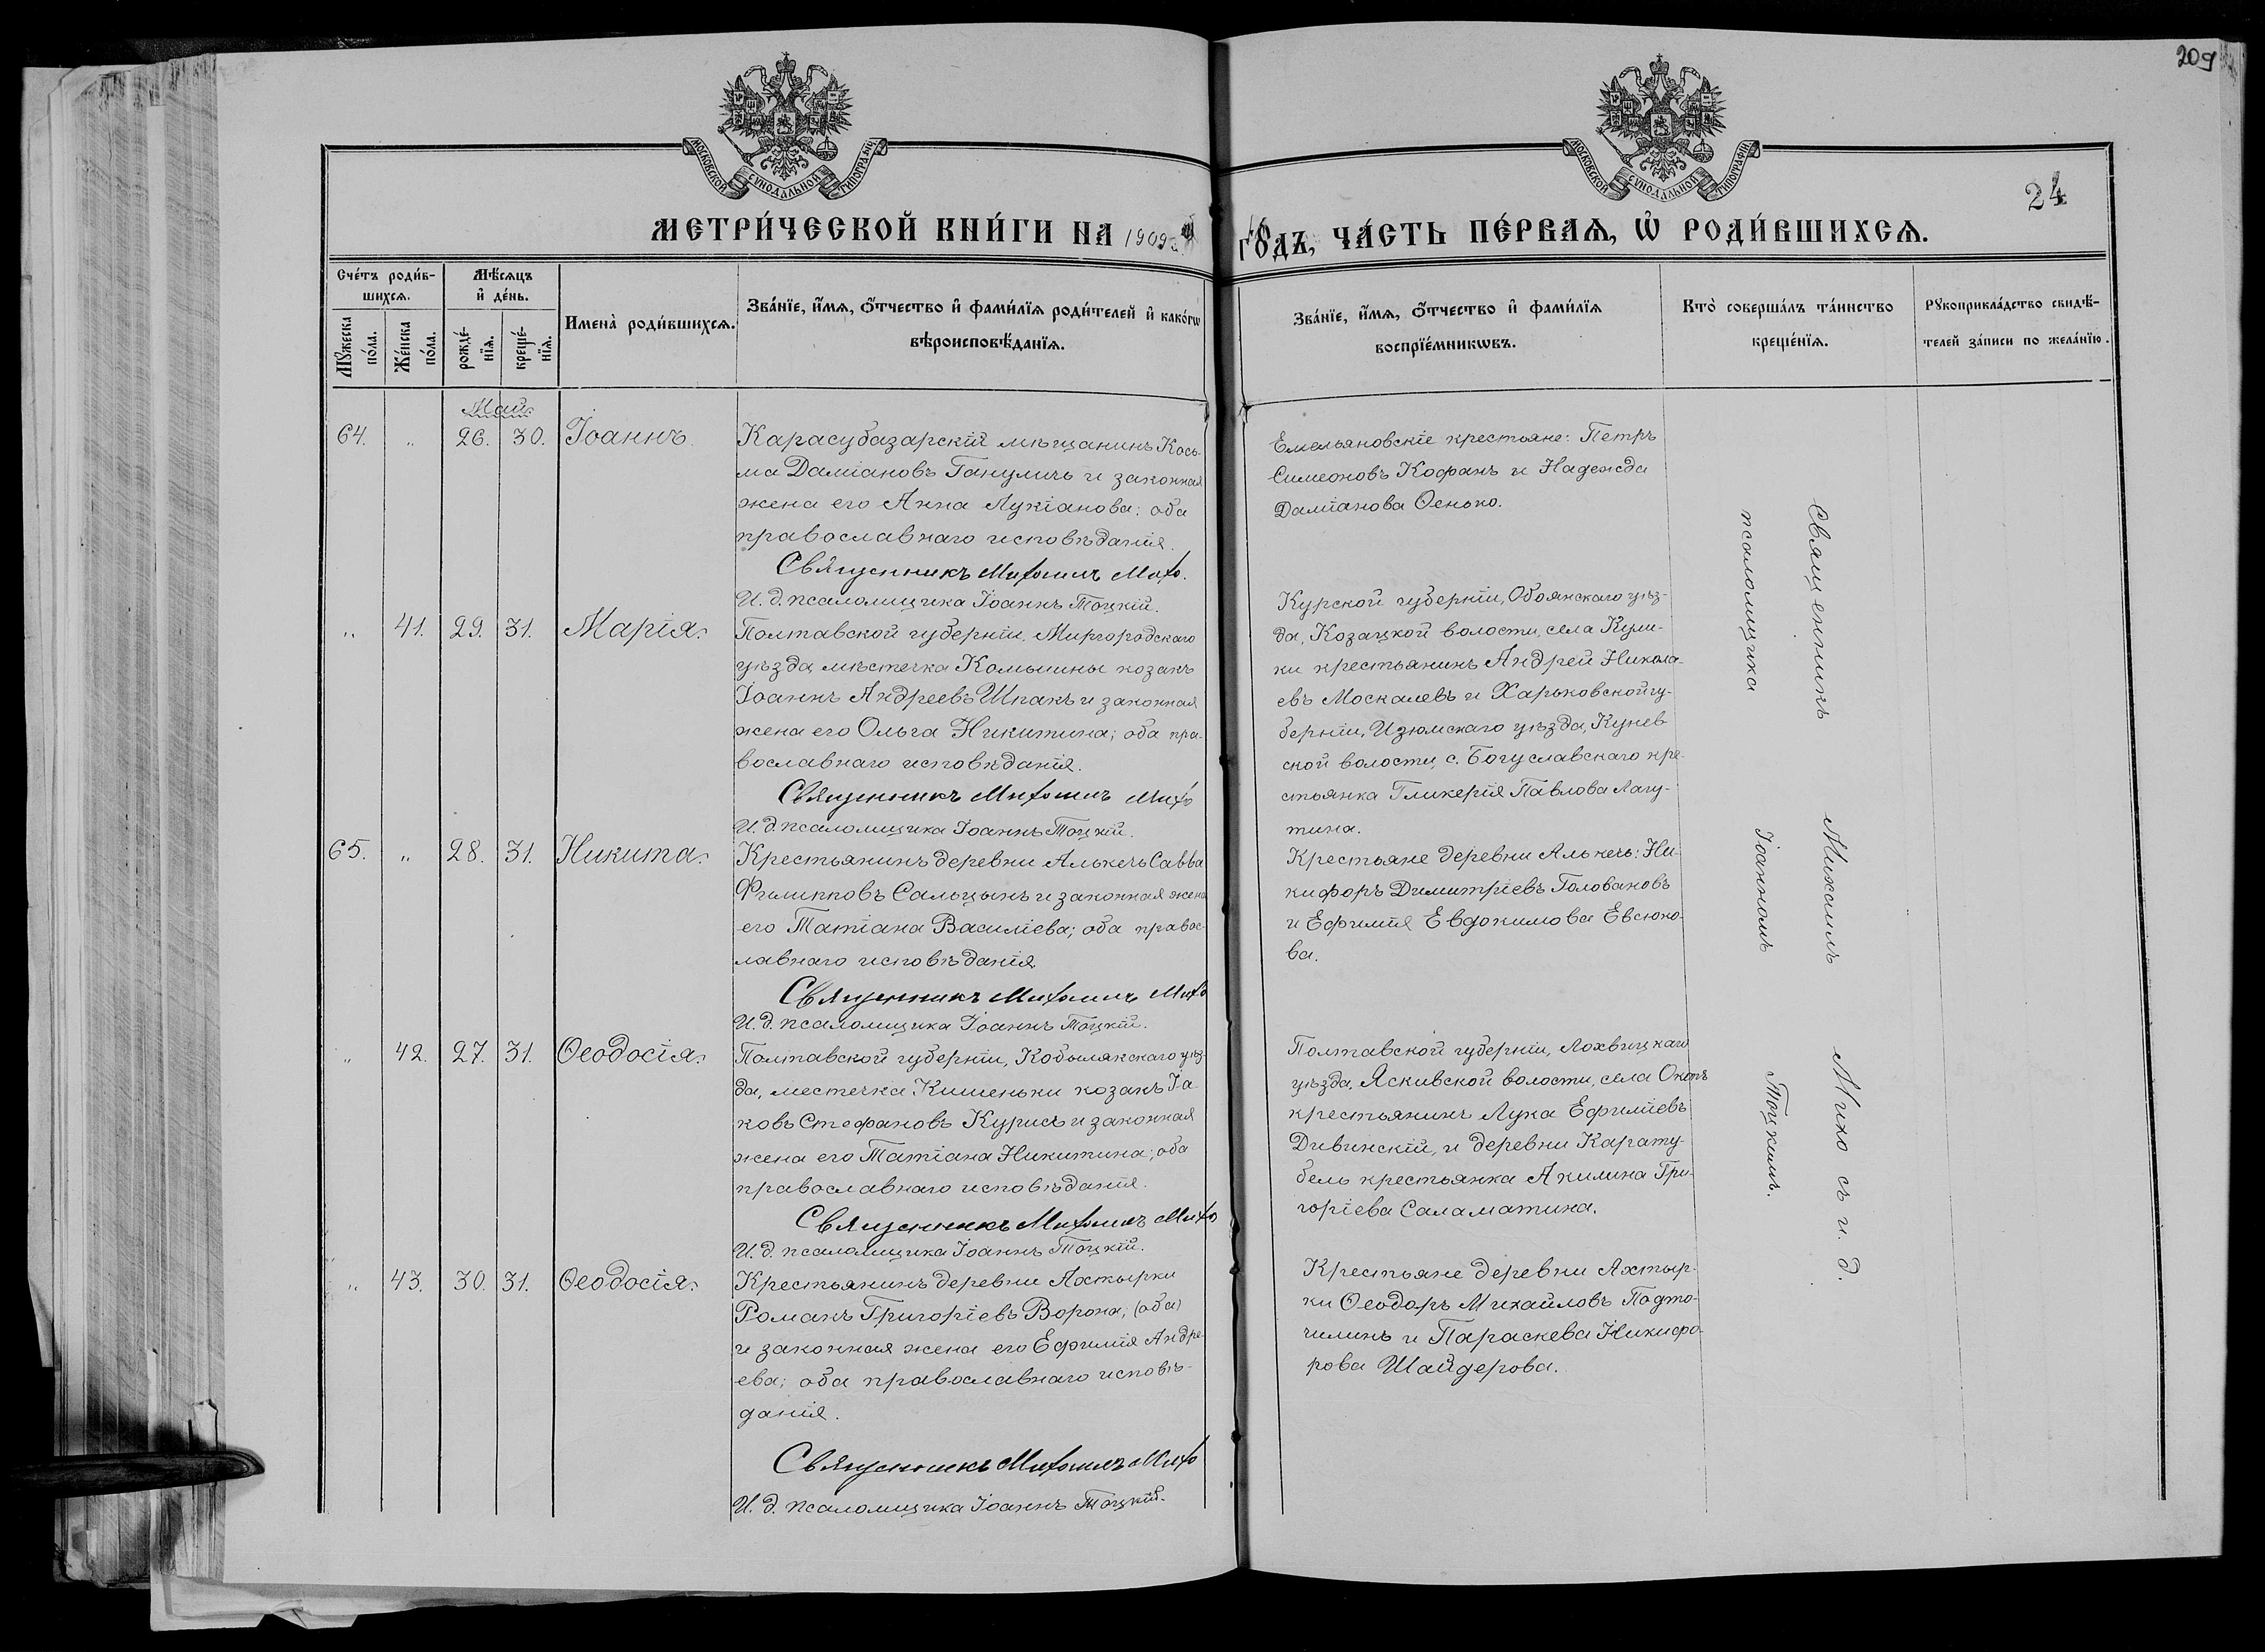 209
МОСКОВСКОЙ СѴНОДАЛЬНОЙ ТИПОГРАФІИ
МОСКОВСКОЙ СѴНОДАЛЬНОЙ ТИПОГРАФІИ
24
МЕТРИ́ЧЕСКОЙ КНИ́ГИ НА 1909 й
ГО́ДЪ, ЧА́СТЬ ПЕ́РВАѦ, Ѡ҆ РОДИ́ВШИХСѦ.
Сче́тъ роди́в-
шихсѧ.
Мꙋ́жеска по́ла.
Же́нска по́ла.
Мѣ́сѧцъ
и҆ де́нь.
рожде́-
нїѧ.
креще́-
нїѧ.
Имена̀ роди́вшихсѧ.
Зва́нїе, и҆́мѧ, ѻ҆́тчество и҆ фами́лїѧ роди́телей и҆ како́гѡ
вѣроисповѣ́данїѧ.
Зва́нїе, и҆́мѧ, ѻ҆́тчество и҆ фами́лїѧ
воспрїе́мникѡвъ.
Кто̀ соверша́лъ та́инство
креще́нїѧ.
Рꙋкоприкла́дство свидѣ́-
телей за́писи по жела́нїю.
Май.
64. „ 26. 30. Іоаннъ.
Карасубазарскій мѣщанинъ Кось-
ма Даміановъ Гануличъ и законная
жена его Анна Лукіанова; оба
православнаго исповѣданія.
Священникъ Михаилъ Михо.
И. д. псаломщика Іоаннъ Тоцкій.
Емельяновскіе крестьяне: Петръ
Симеоновъ Кофанъ и Надежда
Даміанова Оенько.
„ 41. 29. 31. Марія.
Полтавской губерніи, Миргородскаго
уѣзда мѣстечка Комышны козакъ
Іоаннъ Андреевъ Шпакъ и законная
жена его Ольга Никитина; оба пра-
вославнаго исповѣданія.
Священникъ Михаилъ Михо
И. д. псаломщика Іоаннъ Тоцкій.
Курской губерніи, Обоянскаго уѣз-
да, Козацкой волости, села Кули-
ки крестьянинъ Андрей Никола-
евъ Москалевъ и Харьковской гу-
берніи, Изюмскаго уѣзда, Кунев-
ской волости, с. Богуславскаго кре-
стьянка Гликерія Павлова Лагу-
тина.
65. „ 28. 31. Никита.
Крестьянинъ деревни Алькечъ Савва
Филипповъ Сальцынъ и законная жена
его Татіана Василіева; оба правос-
лавнаго исповѣданія
Священникъ Михаилъ Михо
И. д. псаломщика Іоаннъ Тоцкій.
Крестьяне деревни Алькечъ: Ни-
кифоръ Димитріевъ Головановъ
и Ефимія Евдокимова Евсюко-
ва.
„ 42. 27. 31. Ѳеодосія.
Полтавской губерніи, Кобылякскаго уѣз-
да, местечка Кишеньки козакъ Іа-
ковъ Стефановъ Курисъ и законная
жена его Татіана Никитина; оба
православнаго исповѣданія.
Священникъ Михаилъ Михо
И. д. псаломщика Іоаннъ Тоцкій.
Полтавской губерніи, Лохвицкаго
уѣзда, Яскивской волости, села Окопъ
крестьянинъ Лука Ефиміевъ
Дивинскій, и деревни Карату-
бель крестьянка Акилина Гри-
горіева Саламатина.
„ 43. 30. 31. Ѳеодосія.
Крестьянинъ деревни Ахтырки
Романъ Григоріевъ Ворона, (оба)
и законная жена его Ефимія Андре-
ева; оба православнаго исповѣ-
данія.
Священникъ Михаилъ Михо
И. д. псаломщика Іоаннъ Тоцкій.
Крестьяне деревни Ахтыр-
ки Ѳеодоръ Михайловъ Подто-
чилинъ и Параскева Никифо-
рова Шайдерова.
Священникъ Михаилъ Михо съ и. д.
псаломщика Іоанномъ Тоцкимъ.